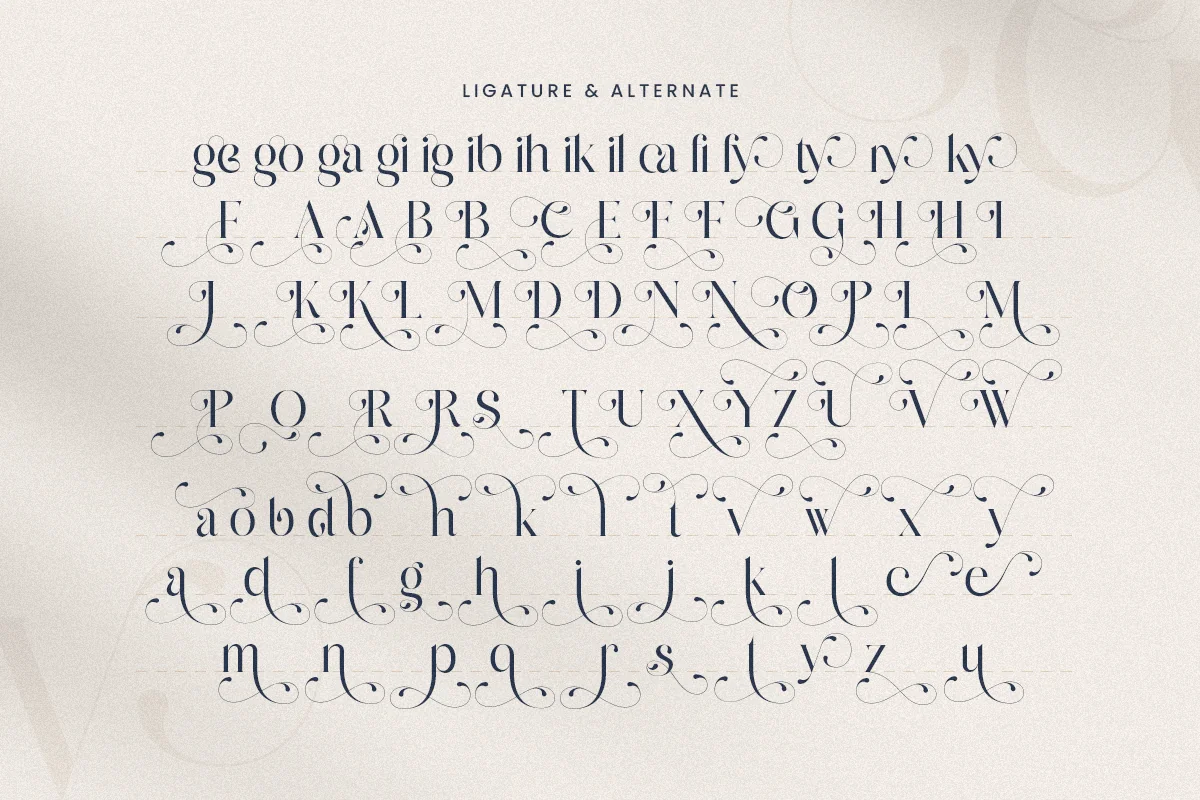 LIGATURE & ALTERNATE
ge go ga gi ig ib ih ik il ca fi fy ty ry ky
F A A B B C E F F G G H H I
J K K L M D D N N O P L M
P Q R R S T U X Y Z U V W
a o b d b h k l t v w x y
a d f g h i j k l c e
m n p q r s t y z u